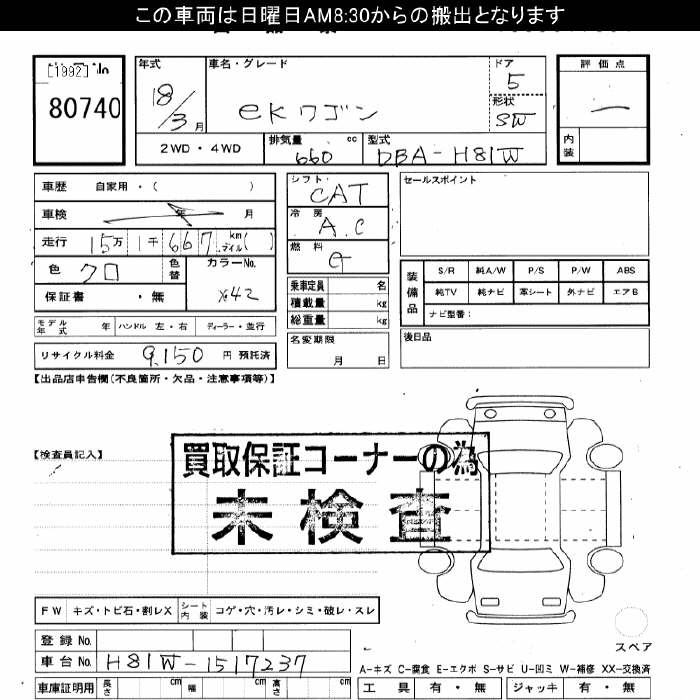 この車両は日曜日AM8:30からの搬出となります
[1992] No
80740
年式
18/3月
車名・グレード
eKワゴン
ドア
5
形状
SW
評価点
—
内装
2WD・4WD
排気量
660 cc
型式
DBA-H81W
車歴 自家用・( )
車検 年 月
走行 15万 1千 667 km マイル ( )
色 クロ
色替
カラーNo.
X42
保証書 ・無
モデル年式 年 ハンドル 左・右 ディーラー・並行
リサイクル料金 9,150 円 預託済
シフト
CAT
冷房
A.C
燃料
G
乗車定員 名
積載量 kg
総重量 kg
名変期限
月 日
セールスポイント
装備品
S/R 純A/W P/S P/W ABS
純TV 純ナビ 革シート 外ナビ エアB
ナビ型番:
後日品
【出品店申告欄(不良箇所・欠品・注意事項等)】
【検査員記入】
買取保証コーナーの為
未検査
FW キズ・トビ石・割レX
シート内装 コゲ・穴・汚レ・シミ・破レ・スレ
登録No.
車台No. H81W-1517237
車庫証明用 長さ cm 幅 cm 高さ cm
スペア
A-キズ C-腐食 E-エクボ S-サビ U-凹ミ W-補修 XX-交換済
工具 有・無 ジャッキ 有・無